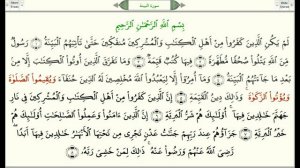 سورة البينة
بِسْمِ ٱللَّهِ ٱلرَّحْمَٰنِ ٱلرَّحِيمِ
لَمْ يَكُنِ ٱلَّذِينَ كَفَرُوا۟ مِنْ أَهْلِ ٱلْكِتَٰبِ وَٱلْمُشْرِكِينَ مُنفَكِّينَ حَتَّىٰ تَأْتِيَهُمُ ٱلْبَيِّنَةُ ۝ رَسُولٌ
مِّنَ ٱللَّهِ يَتْلُوا۟ صُحُفًا مُّطَهَّرَةً ۝ فِيهَا كُتُبٌ قَيِّمَةٌ ۝ وَمَا تَفَرَّقَ ٱلَّذِينَ أُوتُوا۟ ٱلْكِتَٰبَ إِلَّا
مِنۢ بَعْدِ مَا جَآءَتْهُمُ ٱلْبَيِّنَةُ ۝ وَمَآ أُمِرُوٓا۟ إِلَّا لِيَعْبُدُوا۟ ٱللَّهَ مُخْلِصِينَ لَهُ ٱلدِّينَ حُنَفَآءَ وَيُقِيمُوا۟ ٱلصَّلَوٰةَ
وَيُؤْتُوا۟ ٱلزَّكَوٰةَ وَذَٰلِكَ دِينُ ٱلْقَيِّمَةِ ۝ إِنَّ ٱلَّذِينَ كَفَرُوا۟ مِنْ أَهْلِ ٱلْكِتَٰبِ وَٱلْمُشْرِكِينَ فِى نَارِ
جَهَنَّمَ خَٰلِدِينَ فِيهَآ أُو۟لَٰٓئِكَ هُمْ شَرُّ ٱلْبَرِيَّةِ ۝ إِنَّ ٱلَّذِينَ ءَامَنُوا۟ وَعَمِلُوا۟ ٱلصَّٰلِحَٰتِ أُو۟لَٰٓئِكَ هُمْ
خَيْرُ ٱلْبَرِيَّةِ ۝ جَزَآؤُهُمْ عِندَ رَبِّهِمْ جَنَّٰتُ عَدْنٍ تَجْرِى مِن تَحْتِهَا ٱلْأَنْهَٰرُ خَٰلِدِينَ فِيهَآ أَبَدًا
رَّضِىَ ٱللَّهُ عَنْهُمْ وَرَضُوا۟ عَنْهُ ذَٰلِكَ لِمَنْ خَشِىَ رَبَّهُۥ ۝